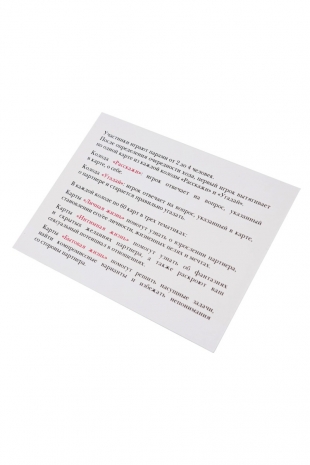 Участники играют парами от 2 до 4 человек.
После определения очередности хода, первый игрок вытягивает
по одной карте из каждой колоды «Расскажи» и «Угадай»
Колода «Расскажи»: игрок отвечает на вопрос, указанный
в карте, о себе.
Колода «Угадай»: игрок отвечает на вопрос, указанный в карте,
о партнере и старается правильно угадать.
В каждой колоде по 60 карт в трех тематиках:
Карты «Личная жизнь» помогут узнать о взрослении партнера,
становлении его/ее личности, жизненных целях и мечтах.
Карты «Интимная жизнь» помогут узнать об фантазиях
и скрытых желаниях партнера, а также раскроют ваш
сексуальный потенциал в отношениях.
Карты «Бытовая жизнь» помогут решить насущные задачи,
найти компромиссные варианты и избежать непонимания
со стороны партнера.